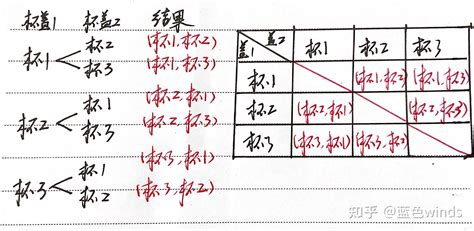 杯盖1 杯盖2 结果
杯1 杯2 (杯1,杯2)
杯3 (杯1,杯3)
杯2 杯1 (杯2,杯1)
杯3 (杯2,杯3)
杯3 杯1 (杯3,杯1)
杯2 (杯3,杯2)
盖1 盖2 杯1 杯2 杯3
杯1 (杯1,杯2) (杯1,杯3)
杯2 (杯2,杯1) (杯2,杯3)
杯3 (杯3,杯1) (杯3,杯2)
知乎 @蓝色winds